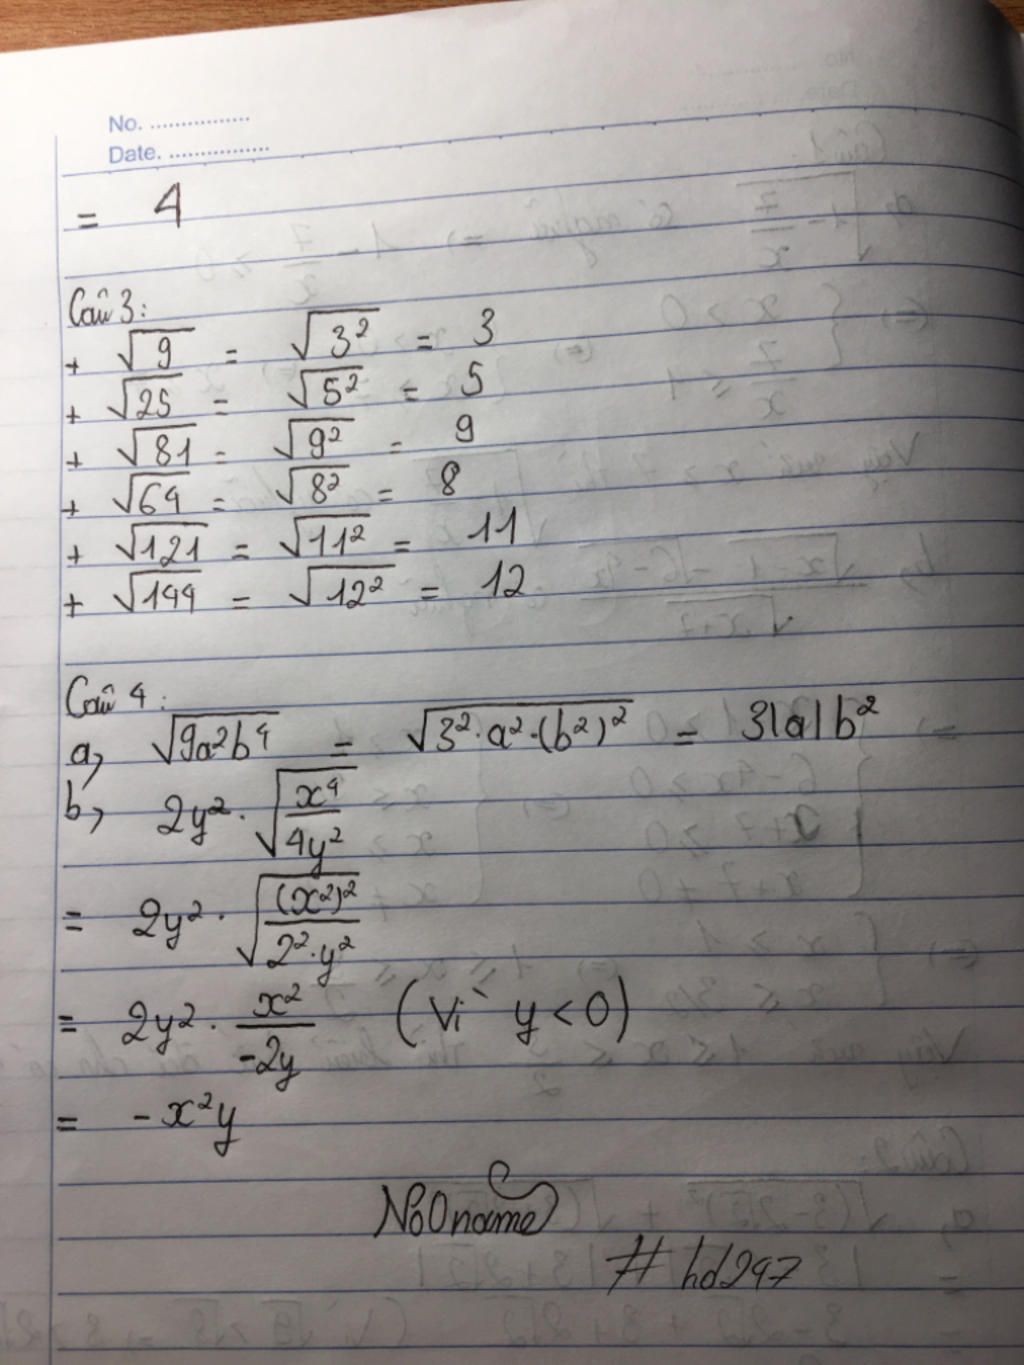 No. ................
Date. ................
= 4
Câu 3:
+ √9 = √3² = 3
+ √25 = √5² = 5
+ √81 = √9² = 9
+ √64 = √8² = 8
+ √121 = √11² = 11
+ √144 = √12² = 12
Câu 4:
a, √9a²b⁴ = √3².a².(b²)² = 3|a|b²
b, 2y² . √(x⁴/4y²)
= 2y² . √((x²)²/2².y²)
= 2y² . x²/-2y (Vì y < 0)
= -x²y
No0name
# hd247